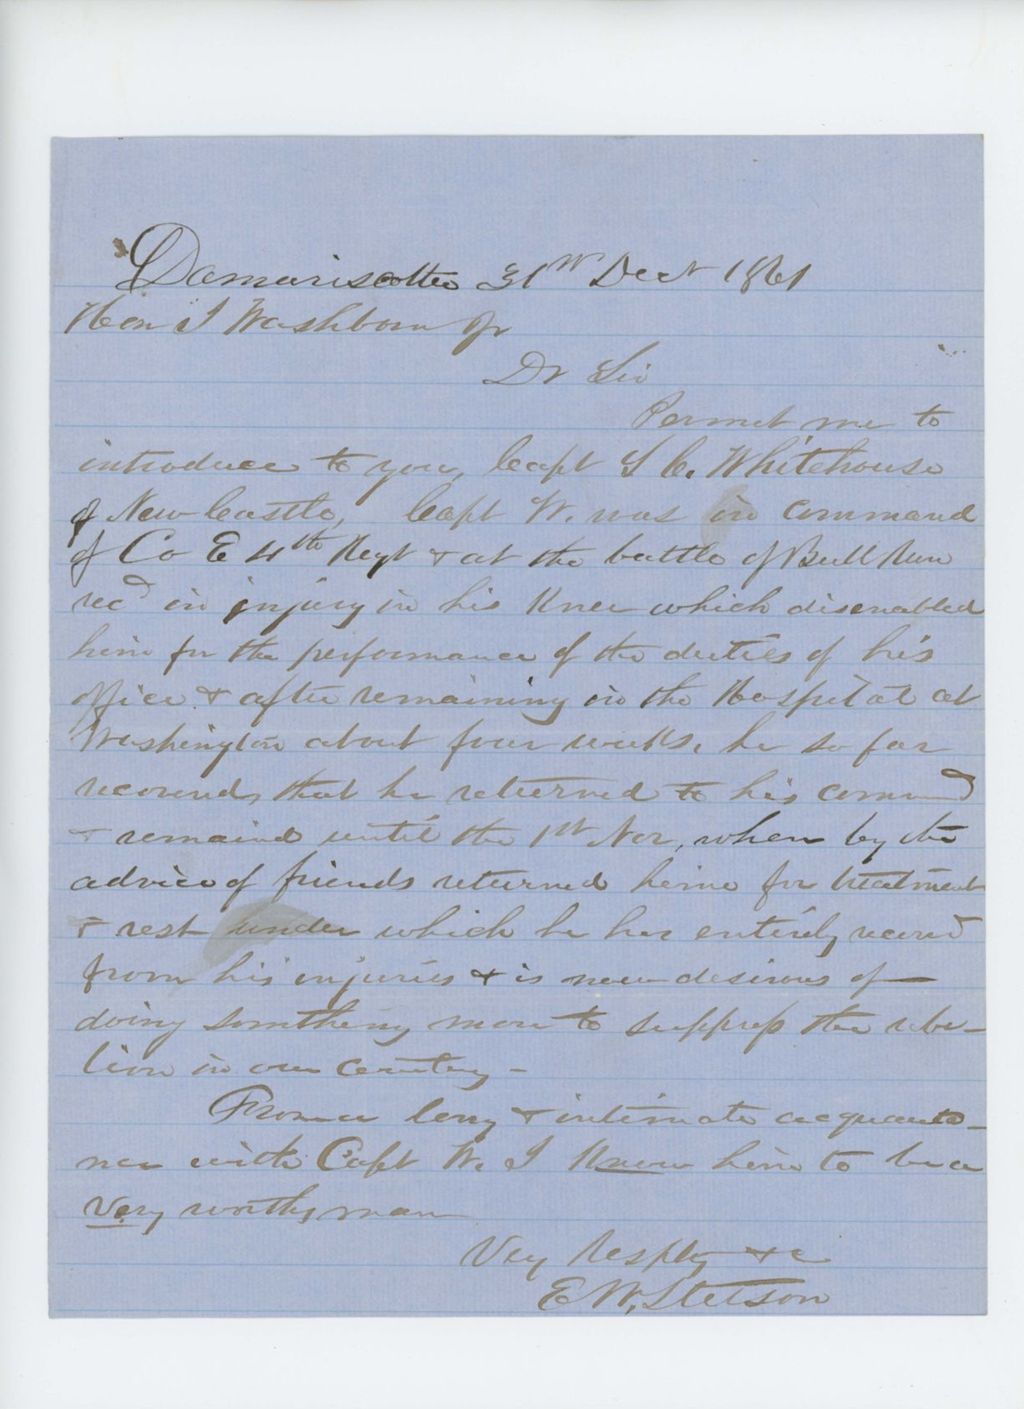 Damariscotta 31st Dect 1861
Hon I Washburn Jr
Dr Sir
Permit me to
introduce to you, Capt S C. Whitehouse
of New Castle, Capt W. was in command
of Co E 4th Regt & at the battle of Bull Run
recd in injury in his Knee which disenabled
him for the performance of the duties of his
office & after remaining in the Hospital at
Washington about four weeks, he so far
recovered, that he returned to his command
& remained until the 1st Nov, when by the
advice of friends returned home for treatment
& rest under which he has entirely recovrd
from his injuries & is now desirous of
doing something more to suppress the rebe-
lion in our country -
From a long & intimate acquainta-
nce with Capt W. I Know him to be a
very worthy man
Very Respty &c
E W. Stetson